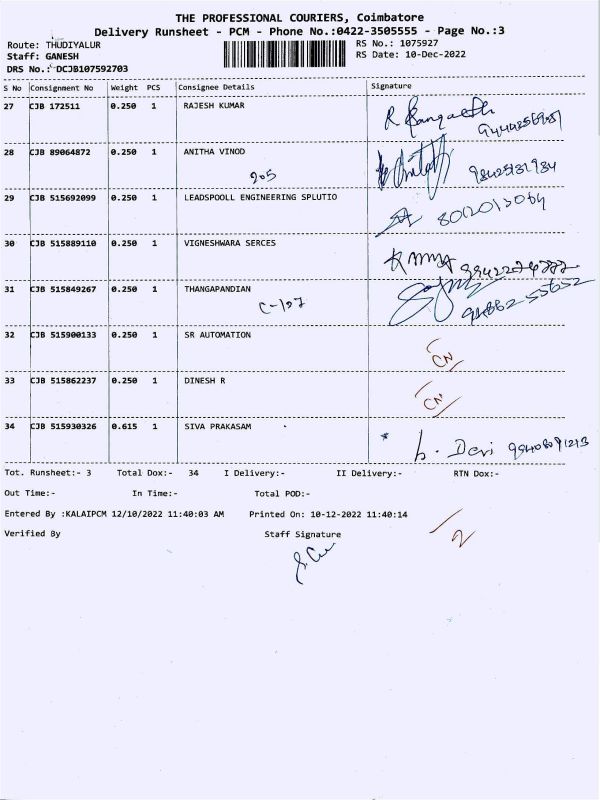 THE PROFESSIONAL COURIERS, Coimbatore
Delivery Runsheet - PCM - Phone No.:0422-3505555 - Page No.:3
Route: THUDIYALUR
RS No.: 1075927
Staff: GANESH
RS Date: 10-Dec-2022
DRS No.: DCJB107592703
S No Consignment No Weight PCS Consignee Details Signature
27 CJB 172511 0.250 1 RAJESH KUMAR
28 CJB 89064872 0.250 1 ANITHA VINOD
205
29 CJB 515692099 0.250 1 LEADSPOOLL ENGINEERING SPLUTIO
30 CJB 515889110 0.250 1 VIGNESHWARA SERCES
31 CJB 515849267 0.250 1 THANGAPANDIAN
C-107
32 CJB 515900133 0.250 1 SR AUTOMATION
CN
33 CJB 515862237 0.250 1 DINESH R
CN
34 CJB 515930326 0.615 1 SIVA PRAKASAM
Devi
Tot. Runsheet:- 3 Total Dox:- 34 I Delivery:- II Delivery:- RTN Dox:-
Out Time:- In Time:- Total POD:-
Entered By :KALAIPCM 12/10/2022 11:40:03 AM Printed On: 10-12-2022 11:40:14
Verified By Staff Signature
2